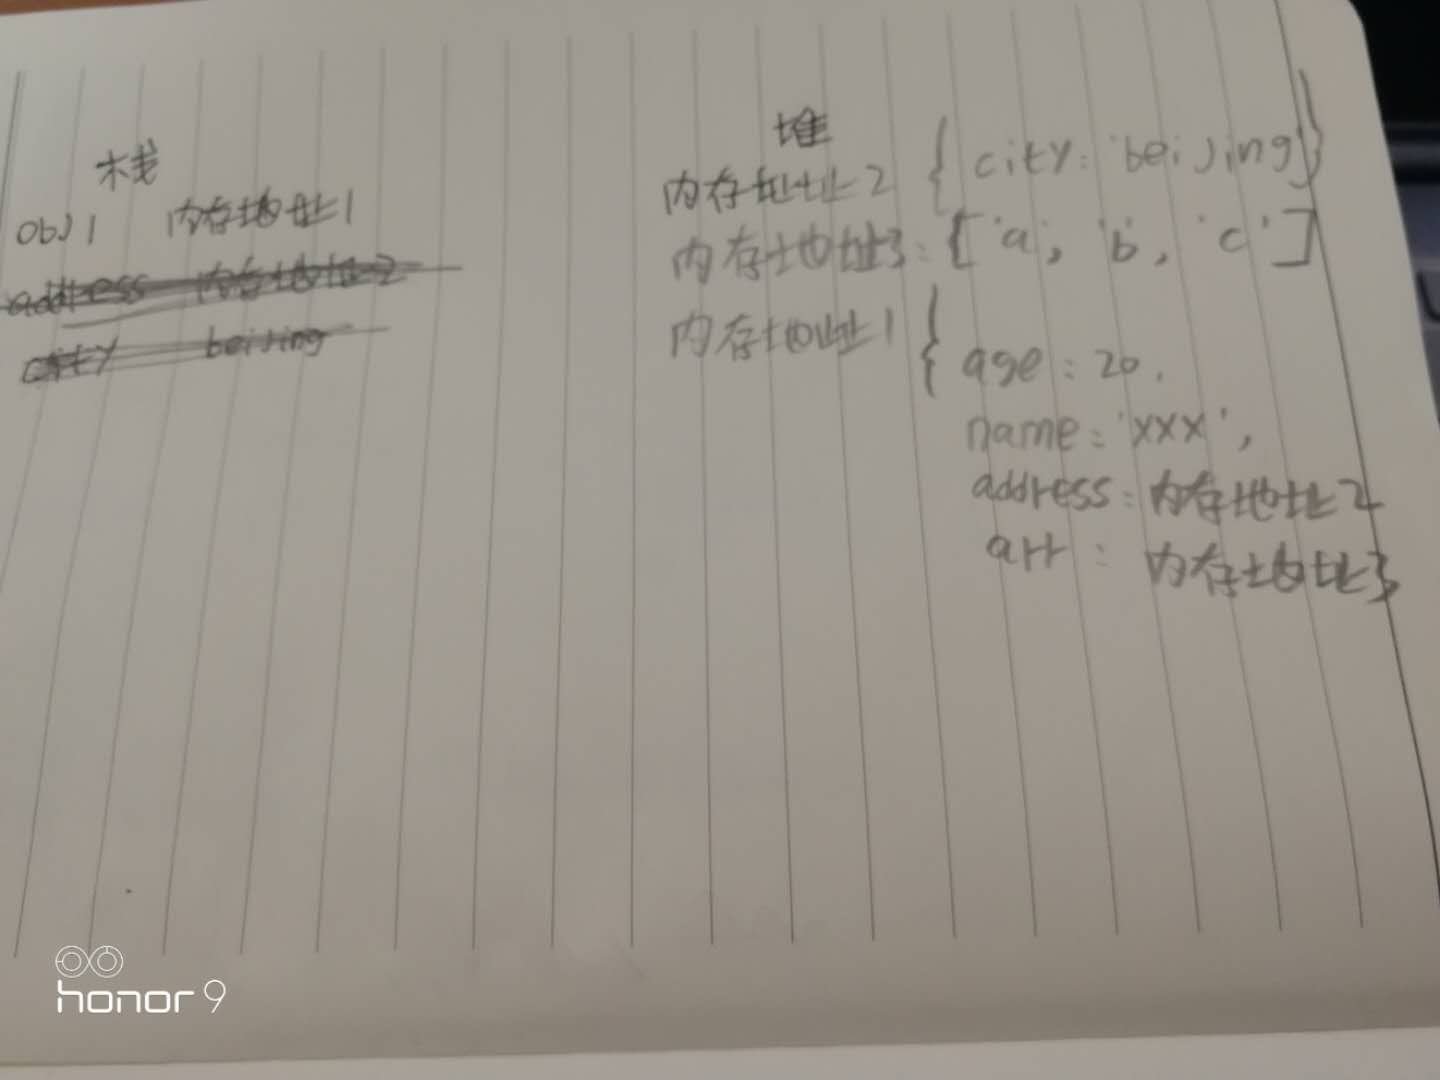 栈
obj1 内存地址1
address 内存地址2
city beijing
堆
内存地址2 { city: 'beijing' }
内存地址3: ['a', 'b', 'c']
内存地址1 { age: 20,
name: 'xxx',
address: 内存地址2
arr: 内存地址3
honor 9